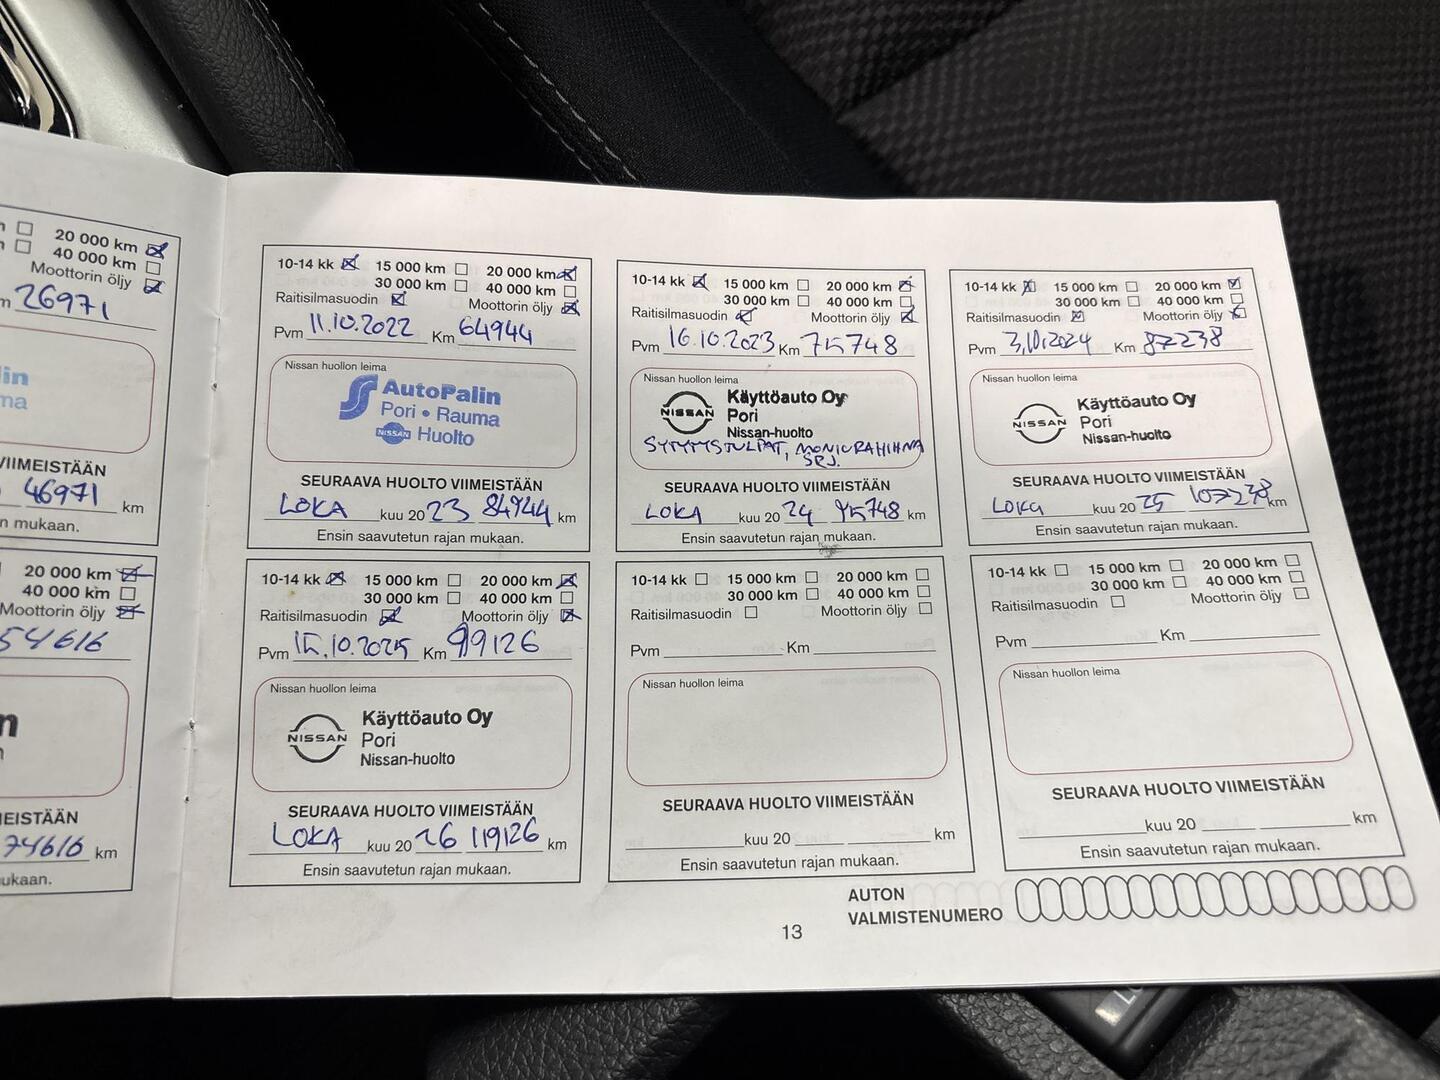 20 000 km
40 000 km
Moottorin öljy
26971
VIIMEISTÄÄN
46971 km
n mukaan.
20 000 km
40 000 km
Moottorin öljy
54616
74616 km
ukaan.
10-14 kk 15 000 km 20 000 km
30 000 km 40 000 km
Raitisilmasuodin Moottorin öljy
Pvm 11.10.2022 Km 64944
Nissan huollon leima
AutoPalin
Pori • Rauma
NISSAN Huolto
SEURAAVA HUOLTO VIIMEISTÄÄN
LOKA kuu 2023 84944 km
Ensin saavutetun rajan mukaan.
10-14 kk 15 000 km 20 000 km
30 000 km 40 000 km
Raitisilmasuodin Moottorin öljy
Pvm 16.10.2023 Km 75748
Nissan huollon leima
NISSAN
Käyttöauto Oy
Pori
Nissan-huolto
SYTYTYSTULPAT, MONIURAHIHNA
SRJ.
SEURAAVA HUOLTO VIIMEISTÄÄN
LOKA kuu 2024 95748 km
Ensin saavutetun rajan mukaan.
10-14 kk 15 000 km 20 000 km
30 000 km 40 000 km
Raitisilmasuodin Moottorin öljy
Pvm 3.10.2024 Km 87238
Nissan huollon leima
NISSAN
Käyttöauto Oy
Pori
Nissan-huolto
SEURAAVA HUOLTO VIIMEISTÄÄN
LOKA kuu 2025 107238 km
Ensin saavutetun rajan mukaan.
10-14 kk 15 000 km 20 000 km
30 000 km 40 000 km
Raitisilmasuodin Moottorin öljy
Pvm 15.10.2025 Km 99126
Nissan huollon leima
NISSAN
Käyttöauto Oy
Pori
Nissan-huolto
SEURAAVA HUOLTO VIIMEISTÄÄN
LOKA kuu 2026 119126 km
Ensin saavutetun rajan mukaan.
10-14 kk 15 000 km 20 000 km
30 000 km 40 000 km
Raitisilmasuodin Moottorin öljy
Pvm Km
Nissan huollon leima
SEURAAVA HUOLTO VIIMEISTÄÄN
kuu 20 km
Ensin saavutetun rajan mukaan.
10-14 kk 15 000 km 20 000 km
30 000 km 40 000 km
Raitisilmasuodin Moottorin öljy
Pvm Km
Nissan huollon leima
SEURAAVA HUOLTO VIIMEISTÄÄN
kuu 20 km
Ensin saavutetun rajan mukaan.
AUTON
VALMISTENUMERO
13